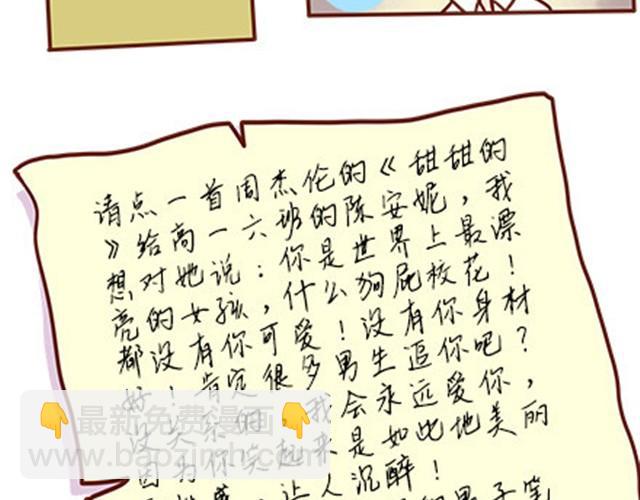 请点一首周杰伦的《甜甜的
》给高一六班的陈安妮，我
想对她说：你是世界上最漂
亮的女孩，什么狗屁校花！
都没有你可爱！没有你身材
好！肯定很多男生追你吧？
没关系的，我会永远爱你，
因为你笑起来是如此地美丽
让人沉醉！
👇最新免费漫画👇
www.baozimh.com